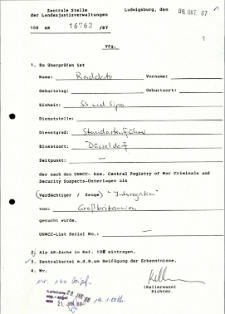 Zentrale Stelle
der Landesjustizverwaltungen
Ludwigsburg, den 06. OKT. 87
108 AR 16762 /87
1
Vfg.
1. Zu überprüfen ist
Name: Vorname:
Geburtstag: Geburtsort:
Einheit: SS und Sipo
Dienststelle:
Dienstgrad: Standartenführer
Einsatzort: Düsseldorf
Zeitpunkt: —
der nach den UNWCC- bzw. Central Registry of War Criminals and
Security Suspects-Unterlagen als
(Verdächtiger / Zeuge)
von: Großbritannien
gesucht wurde.
UNWCC-List Serial No.: —
2. Als AR-Sache in Bd. 108 eintragen.
3. Zentralkartei m.d.B.um Beifügung der Erkenntnisse.
4. Wv.
Richter